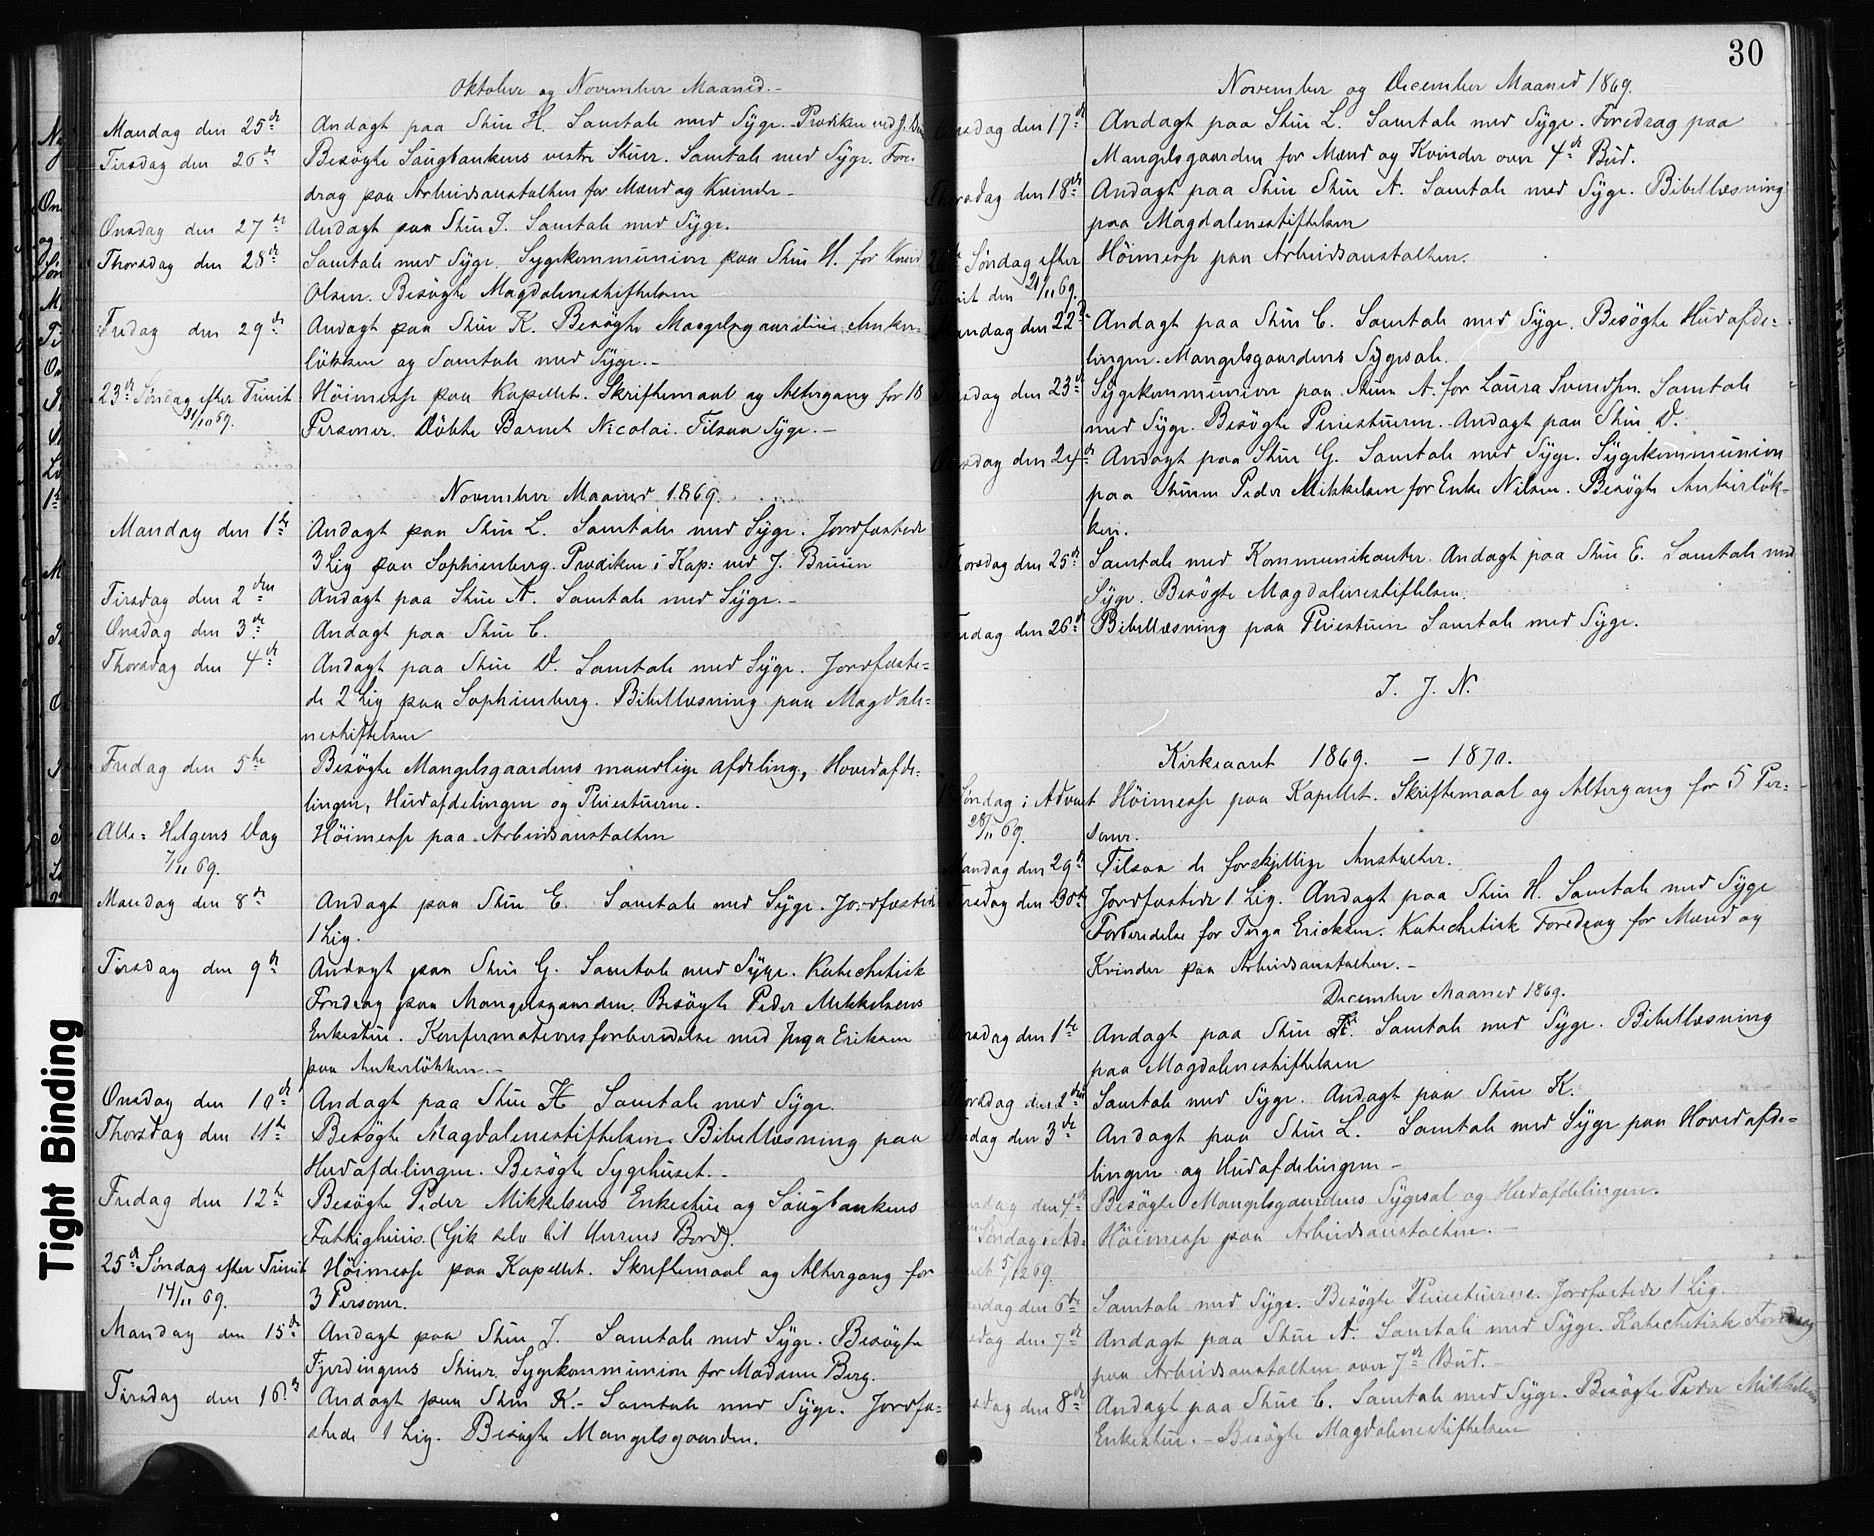 Oktober og November Maaned.-
Mandag den 25de Andagt paa Stue H. Samtale med Syge. Prædiken ved J. Bru
Tirsdag den 26de Besøgte Saugbankens vestre Stuer. Samtale med Syge. Fore-
drag paa Arbeidsanstalten for Mænd og Kvinder -
Onsdag den 27de Andagt paa Stue I. Samtale med Syge.
Thorsdag den 28de Samtale med Syge. Sygekommunion paa Stue H. for
Olsen. Besøgte Magdalenestiftelsen
Fredag den 29de Andagt paa Stue K. Besøgte Mangelsgaarden. Anker-
løkken og Samtale med Syge.-
23de Søndag efter Trinit Høimesse paa Kapellet. Skriftemaal og Altergang for 10
31/10 69. Personer. Døbte Barnet Nicolai. Tilsaa Syge.-
November Maaned 1869.
Mandag den 1ste Andagt paa Stue L. Samtale med Syge. Jordfæstede
3 Lig paa Sophienberg. Prædiken i Kap: ved J. Bruun
Tirsdag den 2den Andagt paa Stue A. Samtale med Syge.-
Onsdag den 3de Andagt paa Stue C.
Thorsdag den 4de Andagt paa Stue D. Samtale med Syge. Jordfæste-
de 2 Lig paa Sophienberg. Bibellæsning paa Magdale-
nestiftelsen
Fredag den 5te Besøgte Mangelsgaardens mandlige Afdeling, Hovedafde-
lingen, Hudafdelingen og Pleiestuerne.
Alle-Helgens Dag Høimesse paa Arbeidsanstalten
7/11 69.
Mandag den 8de Andagt paa Stue E. Samtale med Syge. Jordfæstede
1 Lig.
Tirsdag den 9de Andagt paa Stue G. Samtale med Syge. Katechetisk
Foredrag paa Mangelsgaarden. Besøgte Peder Mikkelsens
Enkestue. Konfirmationsforberedelse med Inga Eriksen
paa Ankerløkken.-
Onsdag den 10de Andagt paa Stue H Samtale med Syge.
Thorsdag den 11te Besøgte Magdalenestiftelsen. Bibellæsning paa
Hudafdelingen. Besøgte Sygehuset.-
Fredag den 12te Besøgte Peder Mikkelsens Enkestue og Saugbankens
Fattighuus. (Gik selv til Herrens Bord).
25de Søndag efter Trinit Høimesse paa Kapellet. Skriftemaal og Altergang for
14/11 69. 3 Personer.
Mandag den 15de Andagt paa Stue I. Samtale med Syge. Besøgte
Fjerdingens Stuer. Sygekommunion for Madame Berg.
Tirsdag den 16de Andagt paa Stue K.- Samtale med Syge. Jordfæ-
stede 1 Lig. Besøgte Mangelsgaarden.
30
November og December Maaned 1869.
Onsdag den 17de Andagt paa Stue L. Samtale med Syge. Foredrag paa
Mangelsgaarden for Mænd og Kvinder over 4de Bud.
Thorsdag den 18de Andagt paa Stue Stue A. Samtale med Syge. Bibellæsning
paa Magdalenestiftelsen
26de Søndag efter Høimesse paa Arbeidsanstalten.
Trinit den 21/11 69.
Mandag den 22de Andagt paa Stue C. Samtale med Syge. Besøgte Hudafde-
lingen. Mangelsgaardens Sygesale.
Tirsdag den 23de Sygekommunion paa Stue A. for Laura Svendsen. Samtale
med Syge. Besøgte Pleiestuerne. Andagt paa Stue D.
Onsdag den 24de Andagt paa Stue G. Samtale med Syge. Sygekommunion
paa Stuen Peder Mikkelsen for Enke Nilsen. Besøgte Ankerløk-
ken.
Thorsdag den 25de Samtale med Kommunikanter. Andagt paa Stue E. Samtale med
Syge. Besøgte Magdalenestiftelsen.
Fredag den 26de Bibellæsning paa Pleiestuen Samtale med Syge.
I. J. N.
Kirkeaaret 1869. - 1870.
1 Søndag i Advent Høimesse paa Kapellet. Skriftemaal og Altergang for 5 Per-
28/11 69. soner.
Mandag den 29de Tilsaa de forskjellige Anstalter.
Tirsdag den 30te Jordfæstede 1 Lig. Andagt paa Stue H. Samtale med Syge
Forberedelse for Inga Ericksen. Katechetisk Foredrag for Mænd og
Kvinder paa Arbeidsanstalten.-
December Maaned 1869.
Onsdag den 1ste Andagt paa Stue Samtale med Syge. Bibellæsning
paa Magdalenestiftelsen
Thorsdag den 2den Samtale med Syge. Andagt paa Stue K.
Fredag den 3de Andagt paa Stue L. Samtale med Syge paa Hovedafde-
lingen og Hudafdelingen-
dag den 4de Besøgte Mangelsgaardens Sygesal og Hudafdelingen.
Søndag i Ad- Høimesse paa Arbeidsanstalten.-
vent 5/12 69.
Mandag den 6te Samtale med Syge. Besøgte Pleiestuerne. Jordfæstede 1 Lig.
Tirsdag den 7de Andagt paa Stue A. Samtale med Syge. Katechetisk Foredrag
paa Arbeidsanstalten over 7de Bud.-
Onsdag den 8de Andagt paa Stue C. Samtale med Syge. Besøgte Peder Mikkelsens
Enkestue.- Besøgte Magdalenestiftelsen
Tight Binding